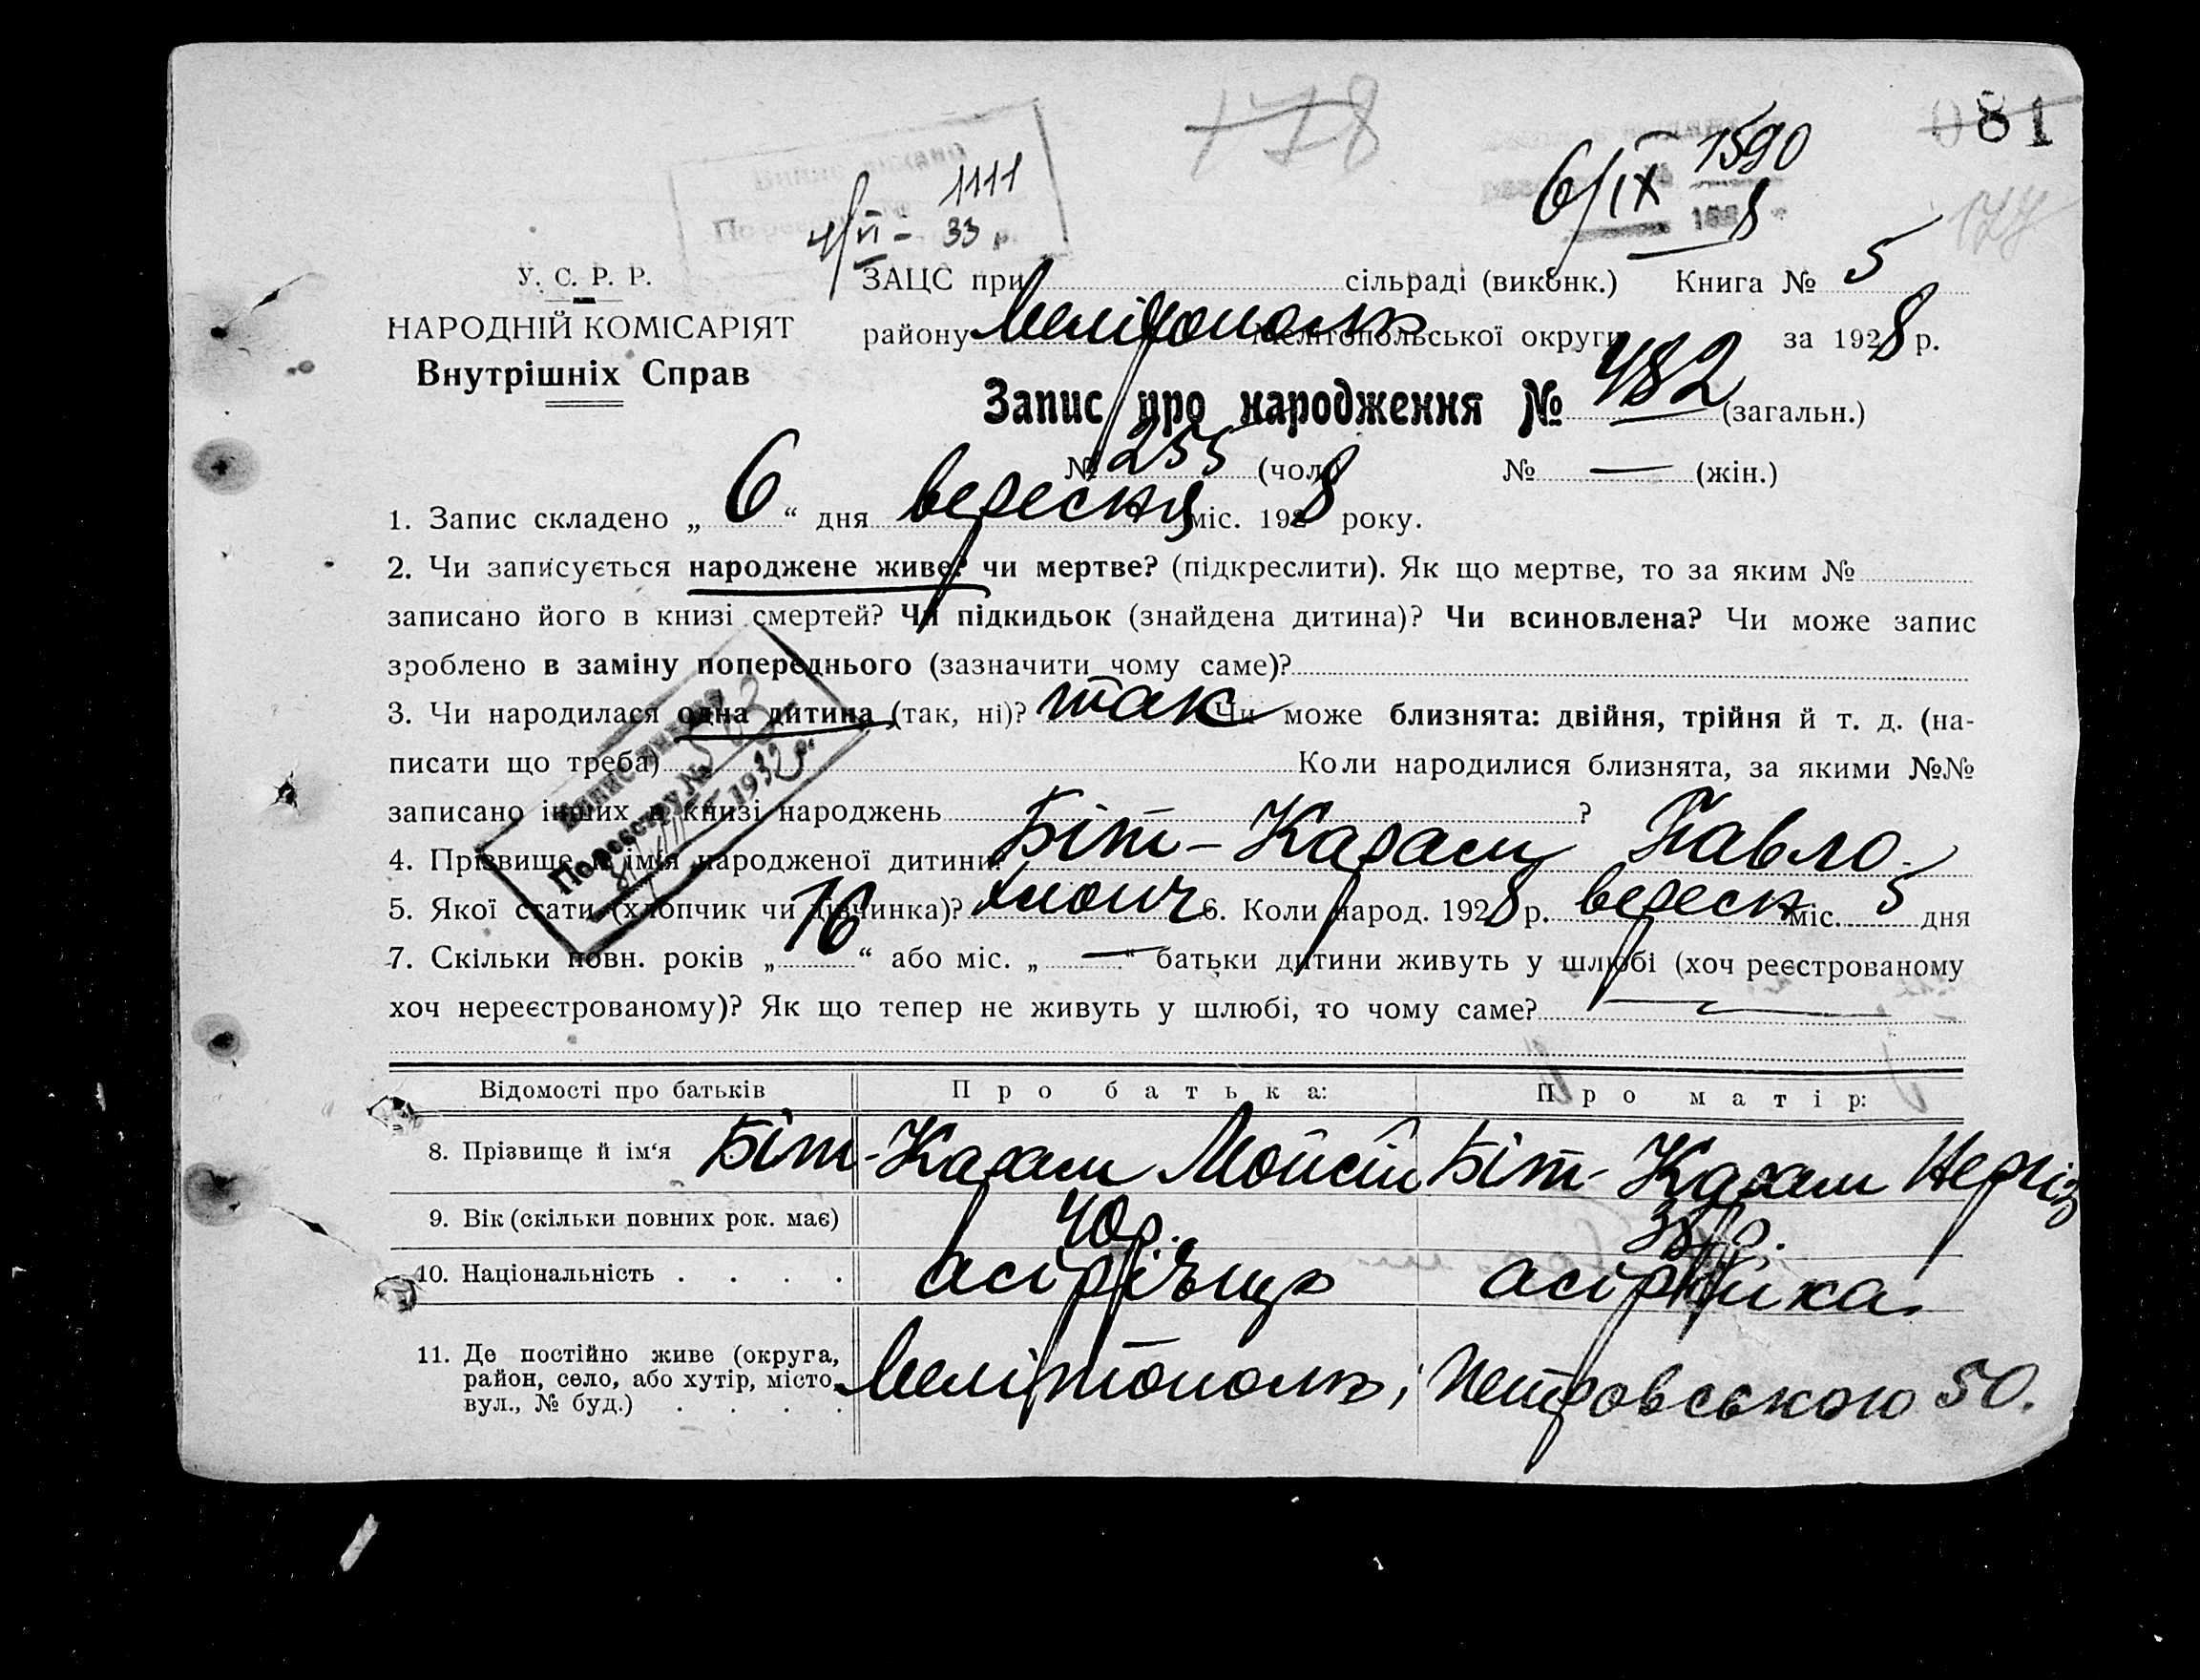 081
178
1590
6/IX 8
1111
4/VI - 33 р.
У. С. Р. Р.
НАРОДНІЙ КОМІСАРІЯТ
Внутрішніх Справ
ЗАЦС при сільраді (виконк.) Книга № 5
району Мелітополь Мелітопольської округи за 1928 р.
Запис про народження № 482 (загальн.)
№ 255 (чол.) № — (жін.)
1. Запис складено „ 6 “ дня вересня міс. 1928 року.
2. Чи записується народжене живе? чи мертве? (підкреслити). Як що мертве, то за яким №
записано його в книзі смертей? Чи підкидьок (знайдена дитина)? Чи всиновлена? Чи може запис
зроблено в заміну попереднього (зазначити чому саме)?
3. Чи народилася одна дитина (так, ні)? так Чи може близнята: двійня, трійня й т. д. (на-
писати що треба) Коли народилися близнята, за якими №№
записано інших в книзі народжень ?
По реєстру № 503
1932 р.
4. Прізвище й ім'я народженої дитини: Біт-Карам Павло.
5. Якої стати (хлопчик чи дівчинка)? хлопч 6. Коли народ. 1928 р. вересн міс. 5 дня
7. Скільки повн. років „ 16 “ або міс. „ — “ батьки дитини живуть у шлюбі (хоч реєстрованому
хоч нереєстрованому)? Як що тепер не живуть у шлюбі, то чому саме? —
Відомості про батьків Про батька: Про матір:
8. Прізвище й ім'я Біт-Карам Мойсій Біт-Карам Нергіз
9. Вік (скільки повних рок. має) 40 р. 38 р.
10. Національність . . . . асірієць асірійка.
11. Де постійно живе (округа,
район, село, або хутір, місто,
вул., № буд.) . . . . Мелітополь, Петровською 50.